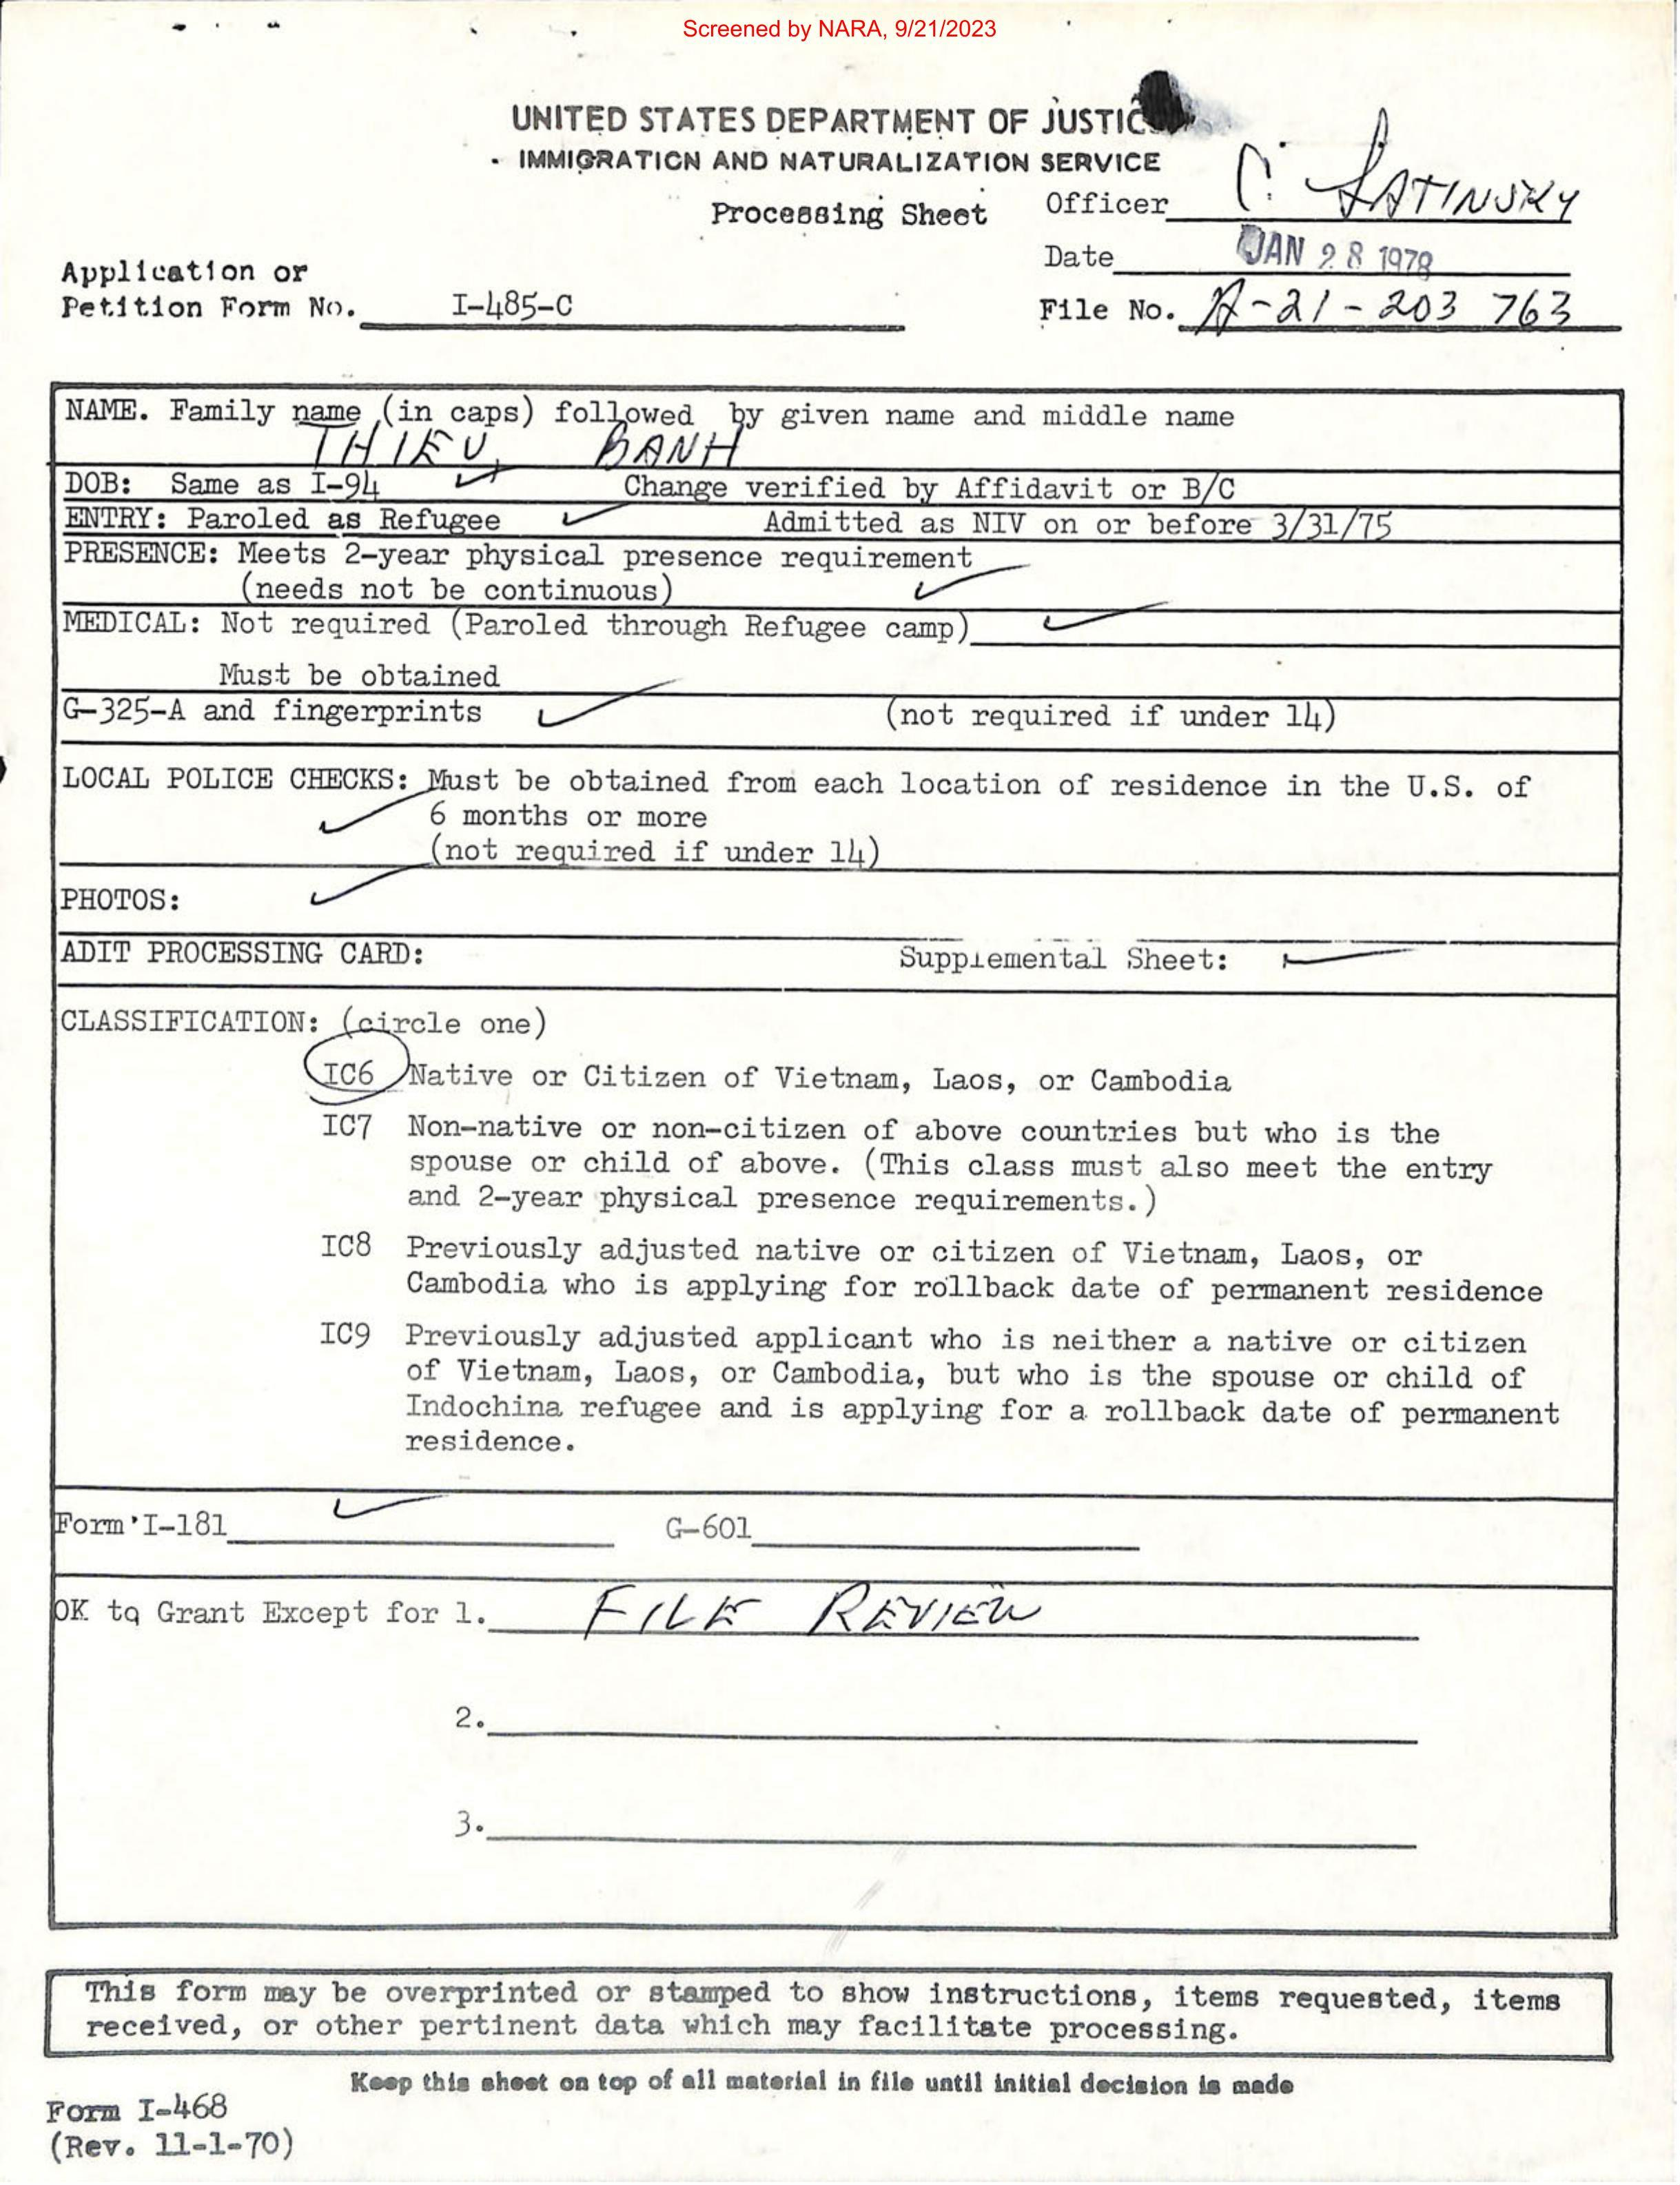 Screened by NARA, 9/21/2023
UNITED STATES DEPARTMENT OF JUSTIC
IMMIGRATION AND NATURALIZATION SERVICE
Processing Sheet
Officer C. LATINSKY
Date JAN 28 1978
Application or
Petition Form No. I-485-C
File No. A-21-203 763
NAME. Family name (in caps) followed by given name and middle name
THIEU, BANH
DOB: Same as I-94 ✓ Change verified by Affidavit or B/C
ENTRY: Paroled as Refugee ✓ Admitted as NIV on or before 3/31/75
PRESENCE: Meets 2-year physical presence requirement
(needs not be continuous) ✓
MEDICAL: Not required (Paroled through Refugee camp) ✓
Must be obtained
G-325-A and fingerprints ✓ (not required if under 14)
LOCAL POLICE CHECKS: Must be obtained from each location of residence in the U.S. of
✓ 6 months or more
(not required if under 14)
PHOTOS: ✓
ADIT PROCESSING CARD: Supplemental Sheet: ✓
CLASSIFICATION: (circle one)
IC6 Native or Citizen of Vietnam, Laos, or Cambodia
IC7 Non-native or non-citizen of above countries but who is the
spouse or child of above. (This class must also meet the entry
and 2-year physical presence requirements.)
IC8 Previously adjusted native or citizen of Vietnam, Laos, or
Cambodia who is applying for rollback date of permanent residence
IC9 Previously adjusted applicant who is neither a native or citizen
of Vietnam, Laos, or Cambodia, but who is the spouse or child of
Indochina refugee and is applying for a rollback date of permanent
residence.
Form I-181 ✓ G-601
OK to Grant Except for 1. FILE REVIEW
2.
3.
This form may be overprinted or stamped to show instructions, items requested, items
received, or other pertinent data which may facilitate processing.
Keep this sheet on top of all material in file until initial decision is made
Form I-468
(Rev. 11-1-70)